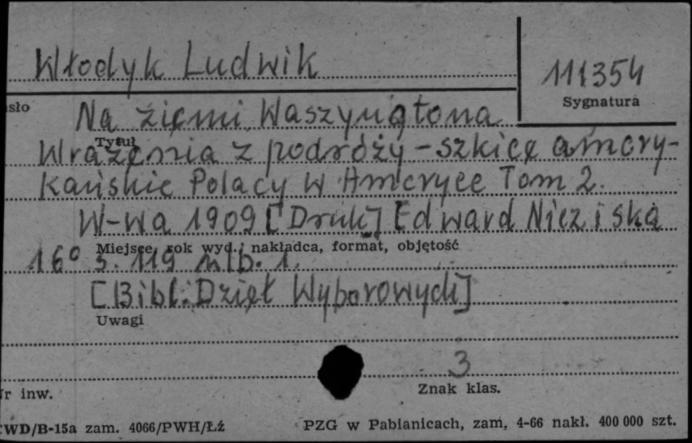 Włodyk Ludwik
111354
Sygnatura
sło
Na ziemi Waszyngtona
Tytuł
Wrażenia z podróży - szkice amery-
kańskie Polacy w Ameryce Tom 2.
W-wa 1909 [Druk] Edward Nicz i ska
Miejsce, rok wyd., nakładca, format, objętość
16° s. 119 nlb. 1.
[Bibl. Dzieł Wyborowych]
Uwagi
3
r inw.
Znak klas.
WD/B-15a zam. 4066/PWH/Łź
PZG w Pabianicach, zam. 4-66 nakł. 400 000 szt.